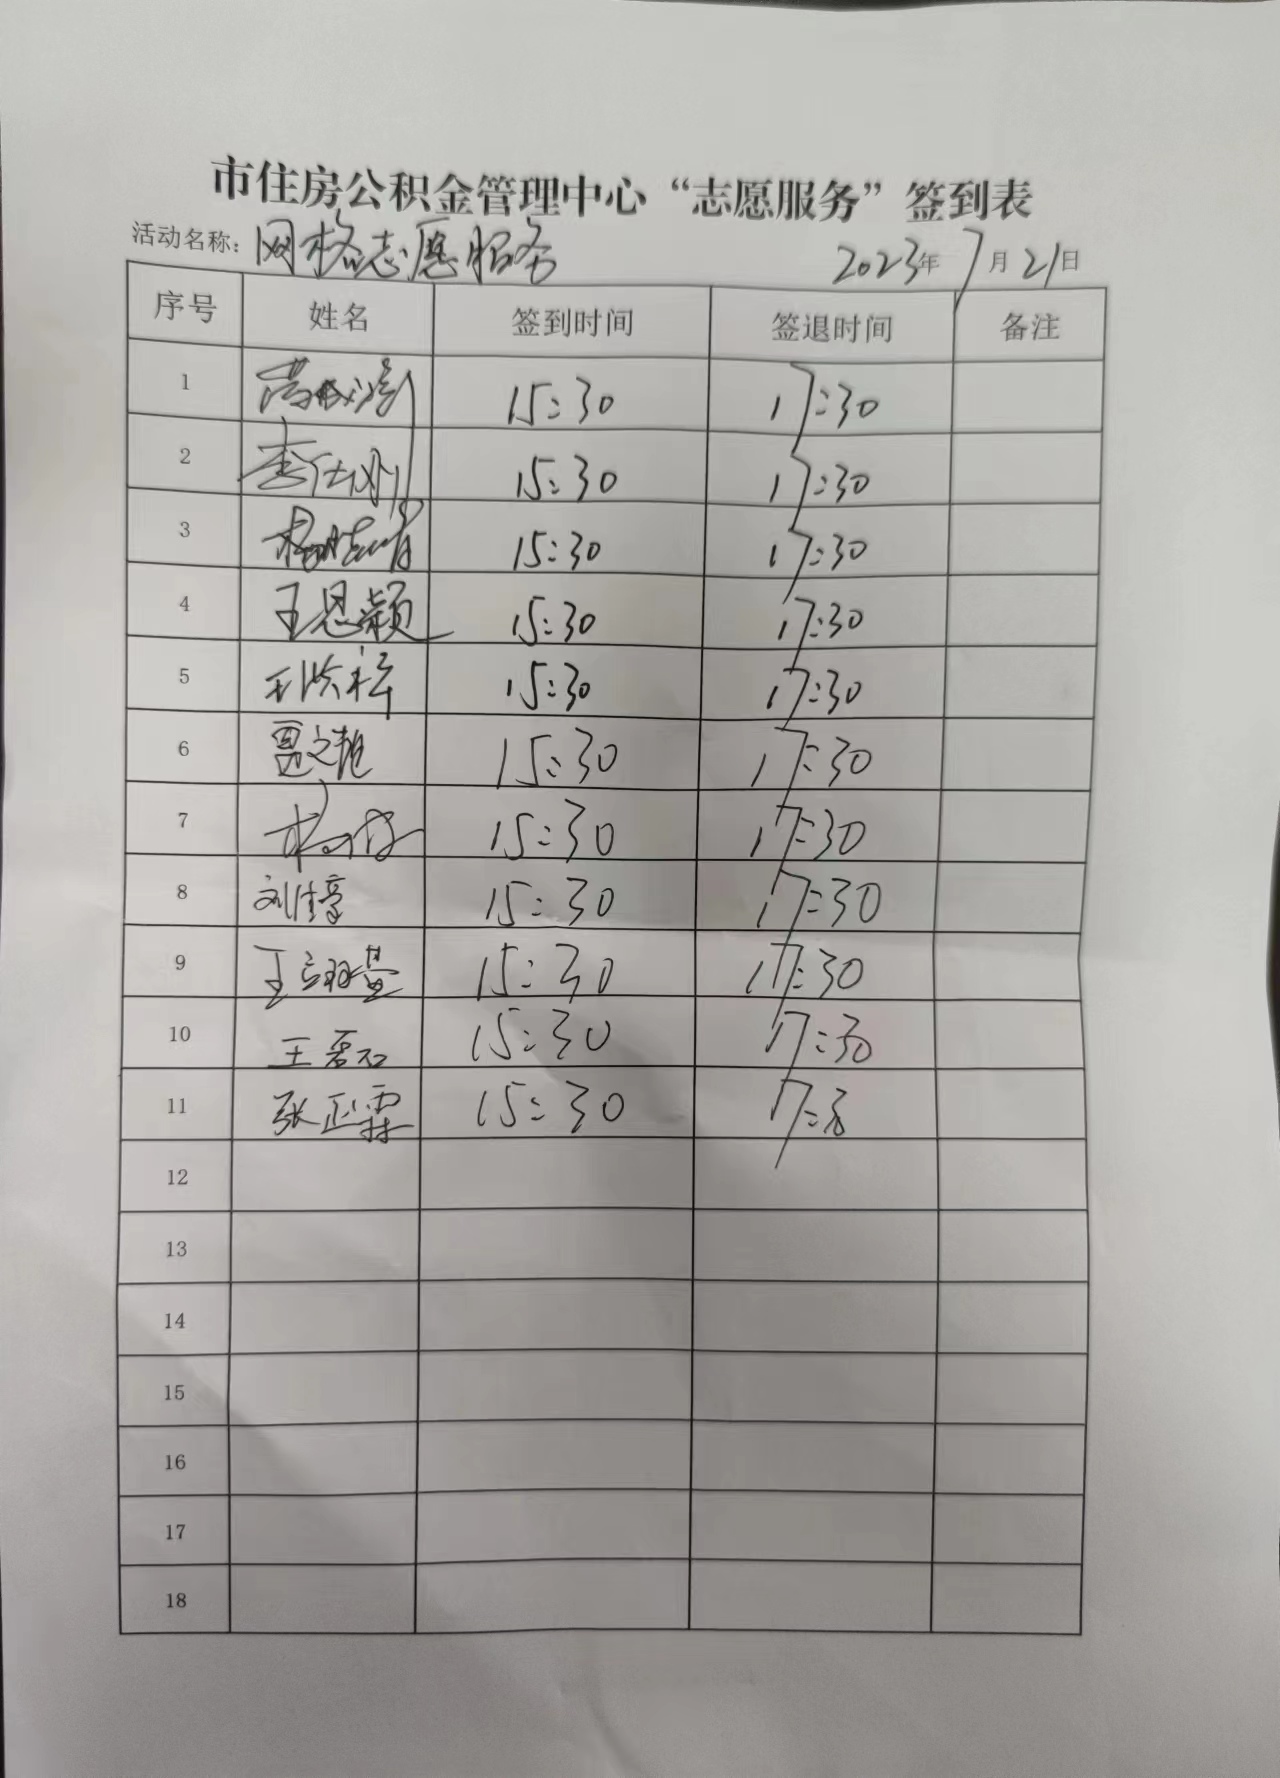 市住房公积金管理中心“志愿服务”签到表
活动名称：网格志愿服务 2023年7月21日
序号 姓名 签到时间 签退时间 备注
1 15:30 17:30
2 15:30 17:30
3 15:30 17:30
4 王恩颖 15:30 17:30
5 王洪梓 15:30 17:30
6 贾之艳 15:30 17:30
7 15:30 17:30
8 刘佳享 15:30 17:30
9 15:30 17:30
10 王磊石 15:30 17:30
11 张正霖 15:30 17:30
12
13
14
15
16
17
18